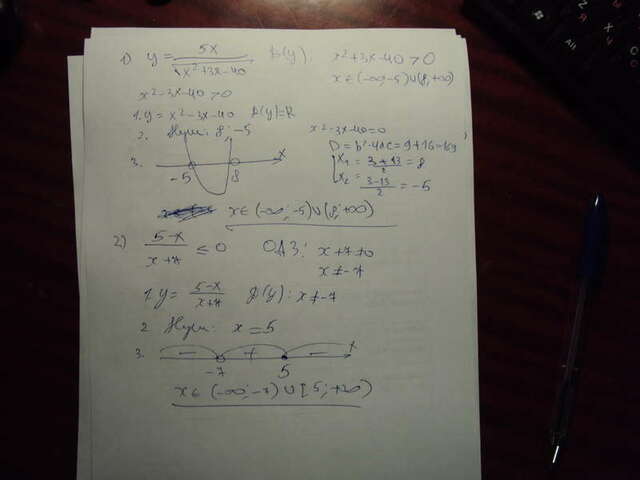 1) y = 5x / √x²+3x-40 D(y), x²+3x-40>0
x∈(-∞;-5)∪(8;+∞)
x²-3x-40>0
1. y = x²-3x-40 D(y)=R
2. Нули: 8; -5 x²-3x-40=0
D = b²-4ac = 9+16=169
x₁ = 3+13 / 2 = 8
x₂ = 3-13 / 2 = -5
3. -5 8 x
x∈(-∞;-5)∪(8;+∞)
2) 5-x / x+7 ≤ 0 ОДЗ: x+7≠0
x≠-7
1. y = 5-x / x+7 D(y): x≠-7
2 Нули: x=5
3. - + - x
-7 5
x∈(-∞;-7)∪[5;+∞)